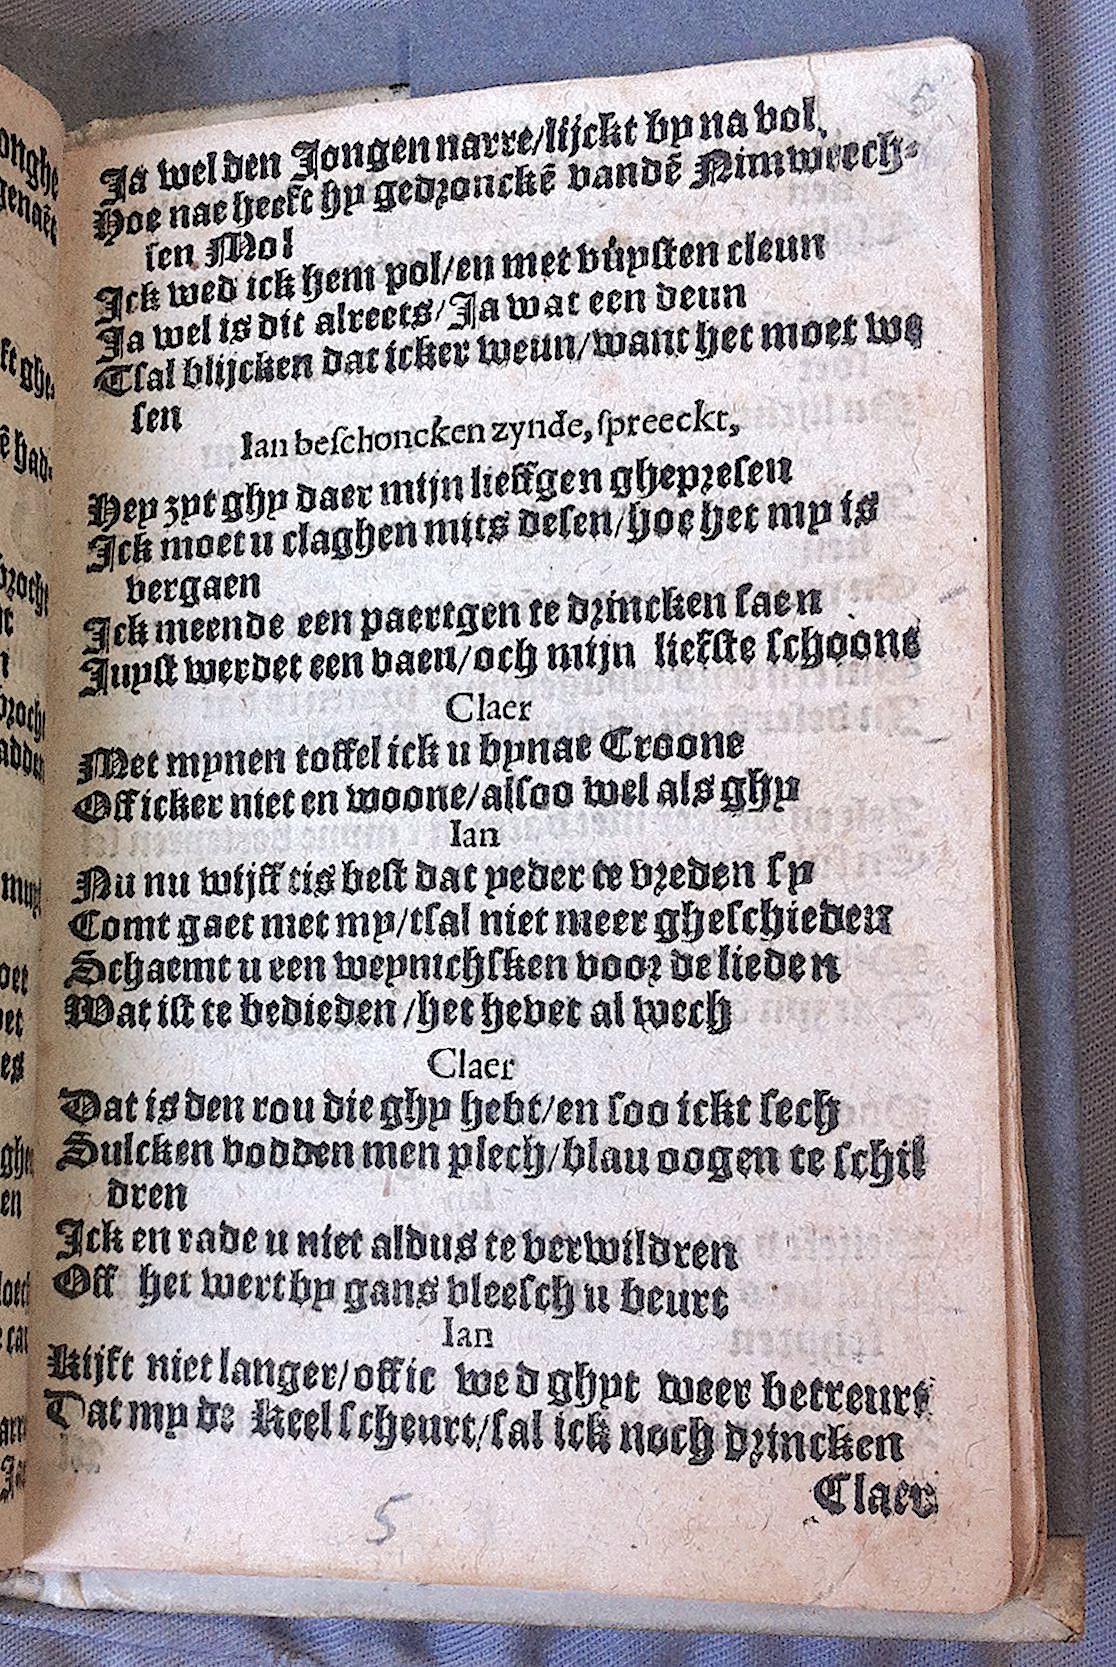 5
Ja wel den Jongen narre/lijckt by na vol,
Hoe nae heeft hy gedronckē vandē Nimweech-
sen Mol
Ick wed ick hem pol/en met vuysten cleun
Ja wel is dit alreets/Ja wat een deun
Tsal blijcken dat icker weun/want het moet we
sen
Ian beschoncken zynde, spreeckt,
Hey zyt ghy daer mijn lieffgen ghepresen
Ick moet u claghen mits desen/hoe het my is
vergaen
Ick meende een paertgen te drincken saen
Juyst werdet een vaen/och mijn liefste schoone
Claer
Met mynen toffel ick u bynae Croone
Off icker niet en woone/alsoo wel als ghy
Ian
Nu nu wijff tis best dat yeder te vreden sy
Comt gaet met my/tsal niet meer gheschieden
Schaemt u een weynichsken voor de lieden
Wat ist te bedieden/het hevet al wech
Claer
Dat is den rou die ghy hebt/en soo ickt sech
Sulcken vodden men plech/blau oogen te schil
dren
Ick en rade u niet aldus te verwildren
Off het wert by gans vleesch u beurt
Ian
Kijft niet langer/off ic wed ghyt weer betreurt
Dat my de keel scheurt/sal ick noch drincken
Claer
5